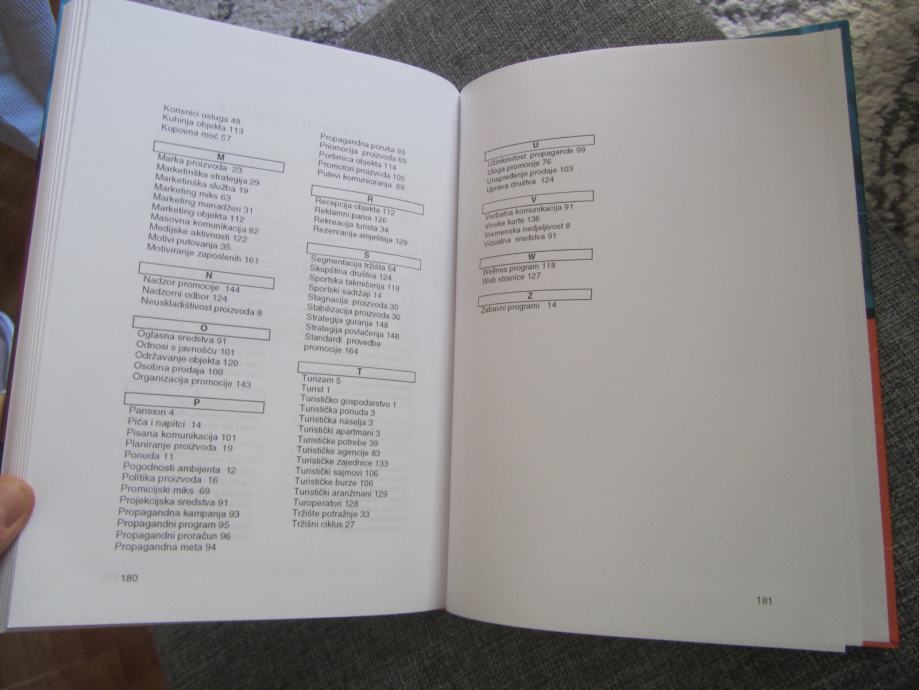 Korisnici usluga 48
Kuhinja objekta 113
Kupovna moć 57
M
Marka proizvoda 23
Marketinška strategija 29
Marketinška služba 19
Marketing miks 63
Marketing menadžeri 31
Marketing objekta 112
Masovna komunikacija 82
Medijske aktivnosti 122
Motivi putovanja 35
Motiviranje zaposlenih 161
N
Nadzor promocije 144
Nadzorni odbor 124
Neuskladištivost proizvoda 8
O
Oglasna sredstva 91
Odnosi s javnošću 101
Održavanje objekta 120
Osobna prodaja 100
Organizacija promocije 143
P
Pansion 4
Pića i napitci 14
Pisana komunikacija 101
Planiranje proizvoda 19
Ponuda 11
Pogodnosti ambijenta 12
Politika proizvoda 16
Promicijski miks 69
Projekcijska sredstva 91
Propagandna kampanja 93
Propagandni program 95
Propagandni proračun 96
Propagandna meta 94
180
Propagandna poruka 93
Priomocija proizvoda 69
Portirnica objekta 114
Promotori proizvoda 105
Putevi komuniciranja 69
R
Recepcija objekta 112
Reklamni panoi 126
Rekreacija turista 34
Rezervacija smještaja 129
S
Segmentacija tržišta 54
Skupština društva 124
Sportska takmičenja 118
Sportski sadržaji 14
Stagnacija proizvoda 30
Stabilizacija proizvoda 30
Strategija guranja 148
Strategija povlačenja 148
Standardi provedbe
promocije 164
T
Turizam 5
Turist 1
Turističko gospodarstvo 1
Turistička ponuda 3
Turistička naselja 3
Turistički apartmani 3
Turističke potrebe 39
Turističke agencije 83
Turističke zajednice 133
Turistički sajmovi 106
Turističke burze 106
Turistički aranžmani 129
Turoperatori 128
Tržište potražnje 33
Tržišni ciklus 27
U
Učinkovitost propagande 99
Uloga promocije 76
Unapređenje prodaje 103
Uprava društva 124
V
Verbalna komunikacija 91
Vinske karte 136
Vremenska nedjeljivost 8
Vizualna sredstva 91
W
Wellnes program 118
Web stranice 127
Z
Zabavni programi 14
181